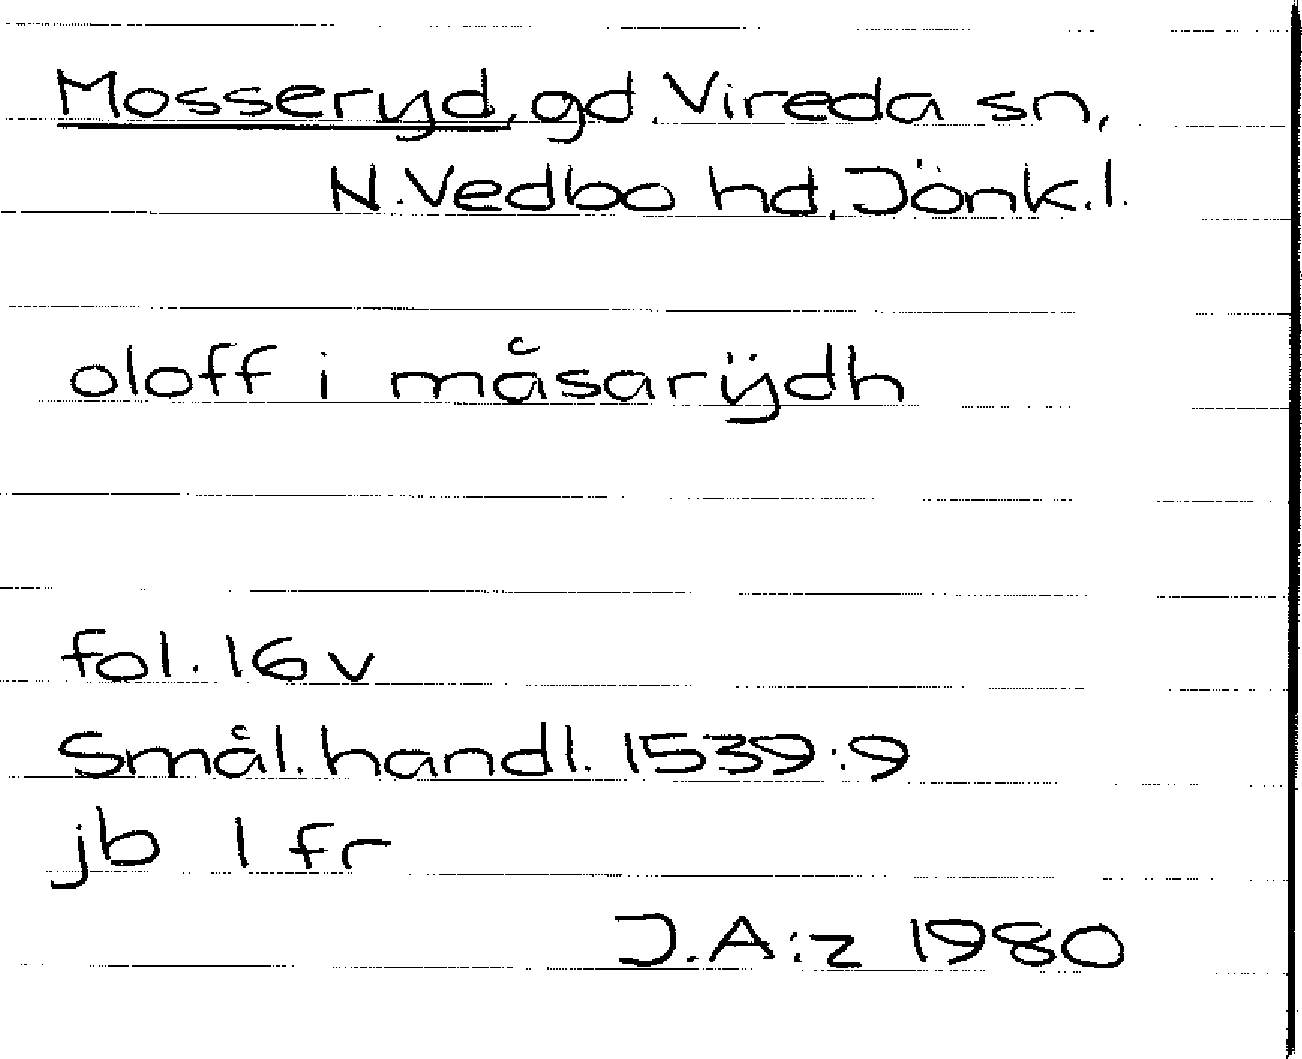 Mosseryd, gd, Vireda sn,
N. Vedbo hd, Jönk. l.
oloff i måsarÿdh
fol. 16 v
Smål. handl. 1539:9
jb 1 fr
J.A:z 1980